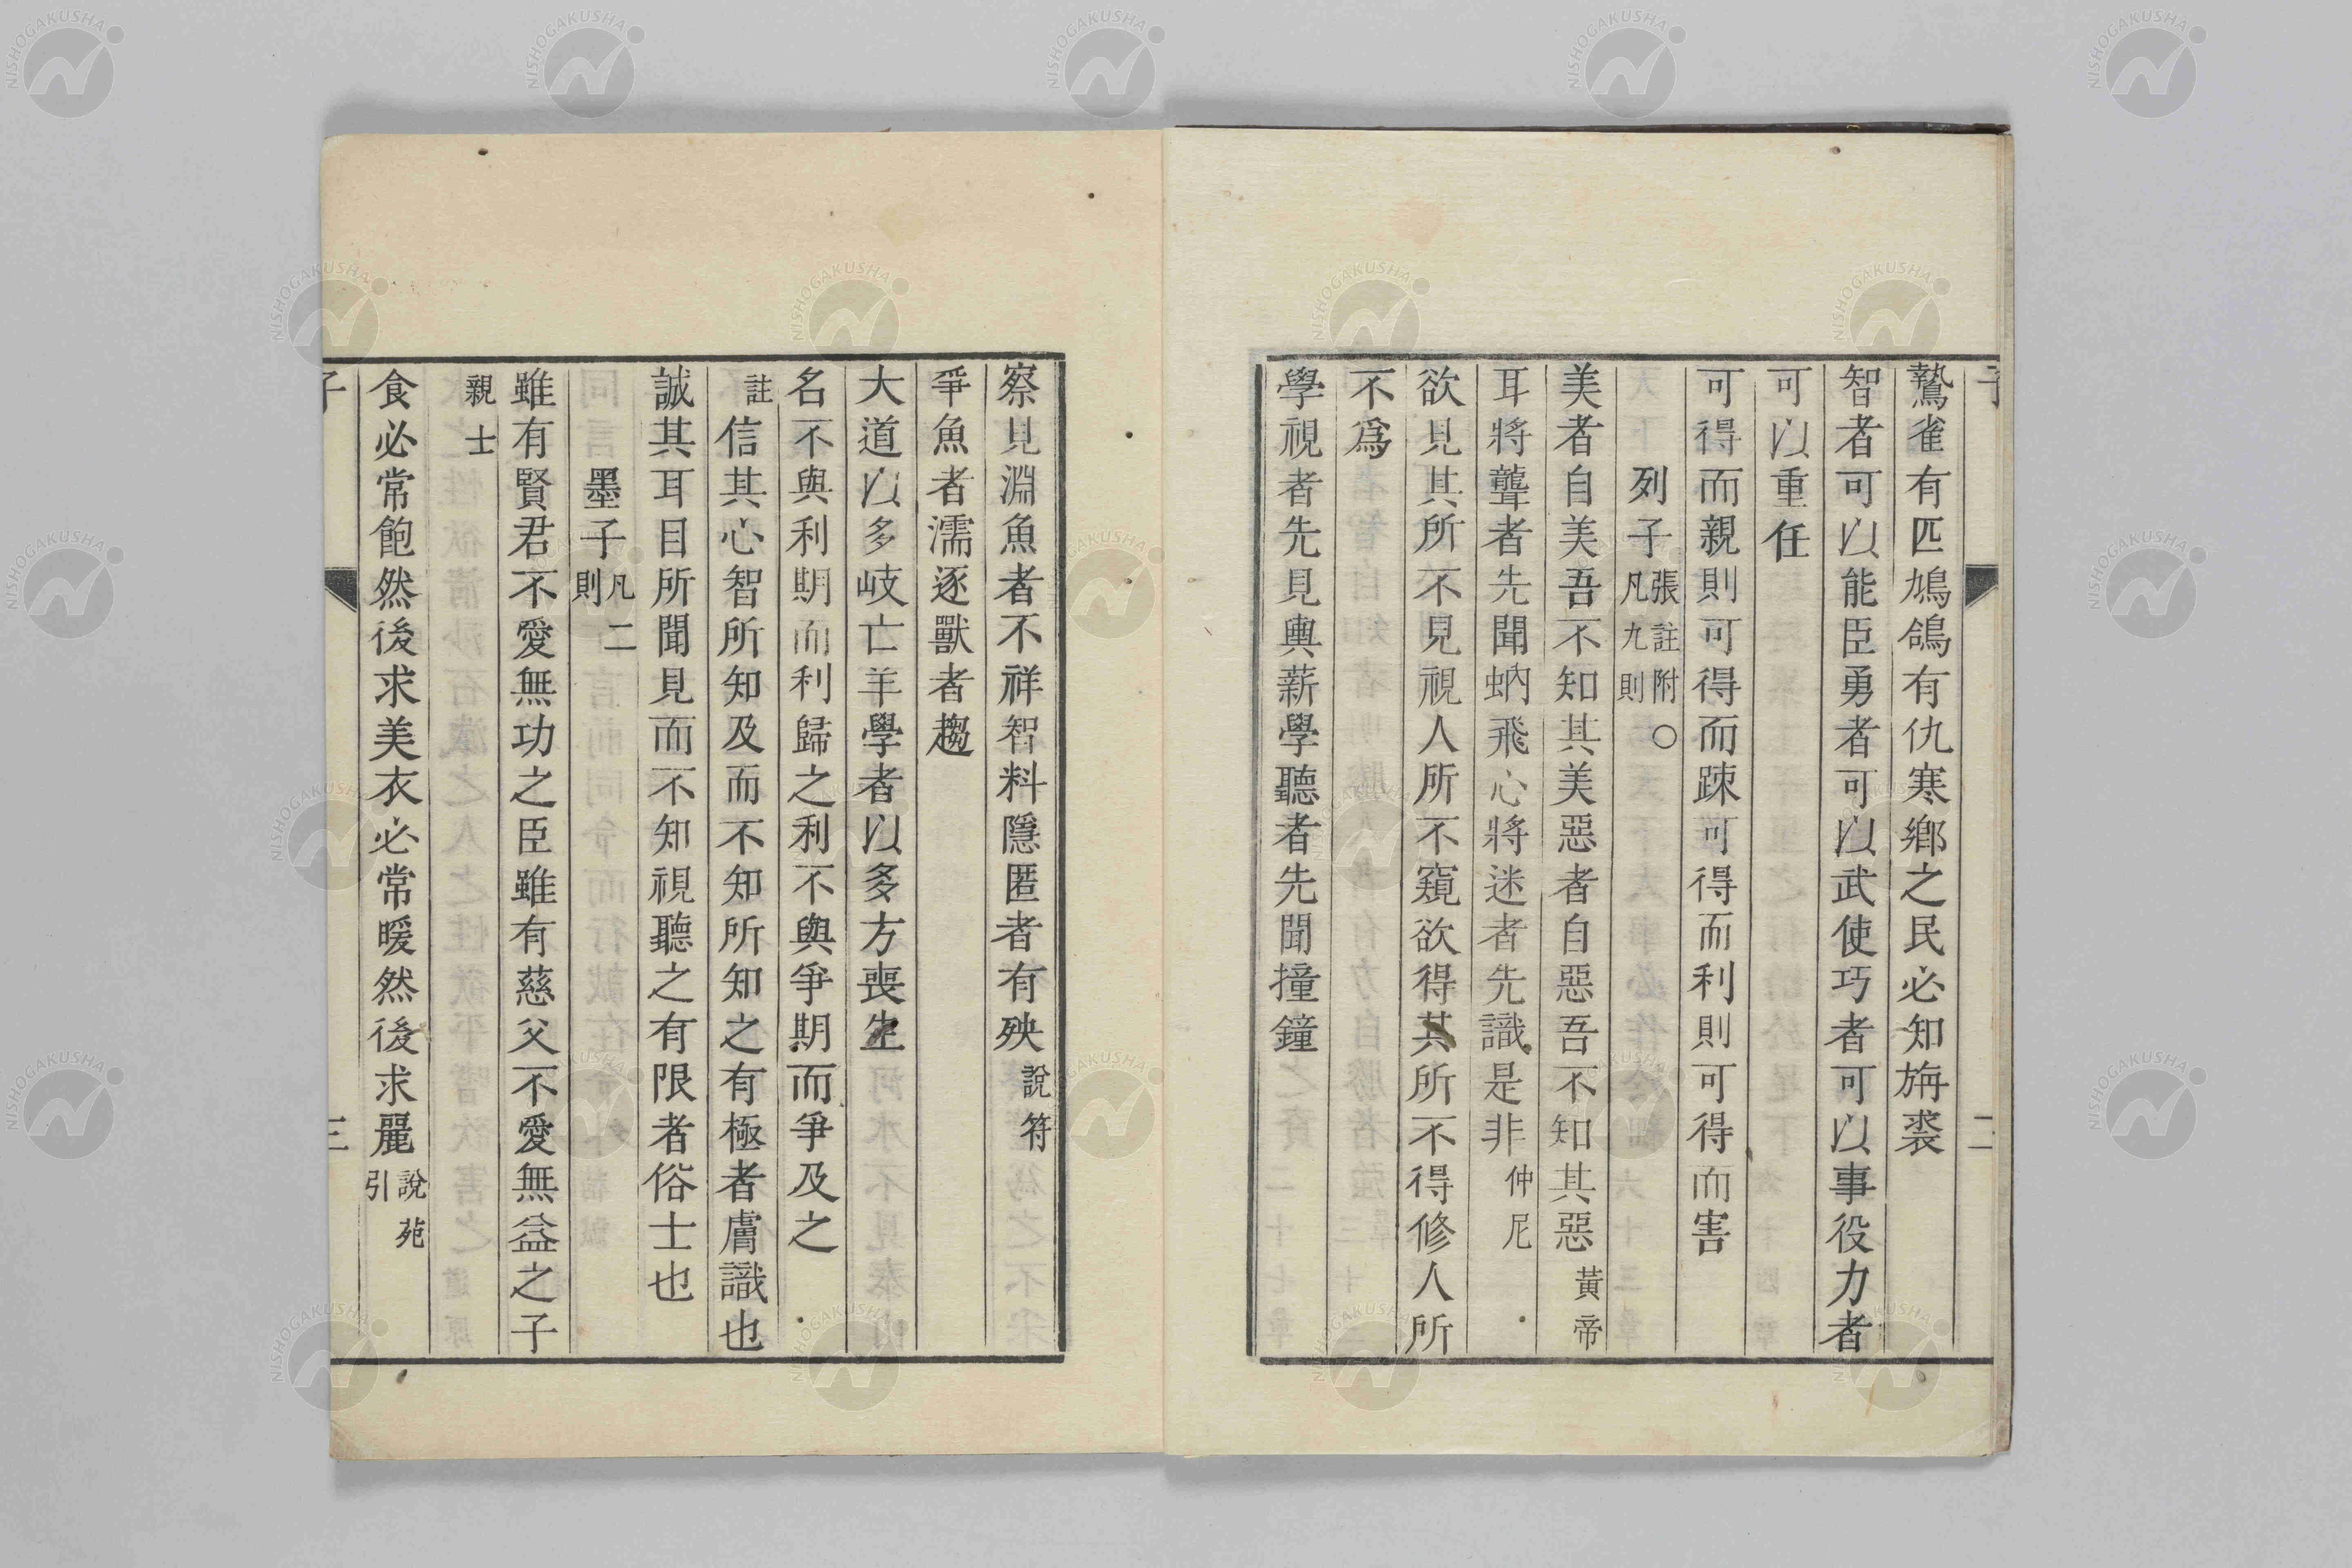 鷙雀有匹鳩鴿有仇寒鄉之民必知旃裘
智者可以能臣勇者可以武使巧者可以事役力者
可以重任
可得而親則可得而疎可得而利則可得而害
列子張註附○凡九則
美者自美吾不知其美惡者自惡吾不知其惡黃帝
耳將聾者先聞蚋飛心將迷者先識是非仲尼
欲見其所不見視人所不窺欲得其所不得修人所
不爲
學視者先見輿薪學聽者先聞撞鐘
二
察見淵魚者不祥智料隱匿者有殃說符
爭魚者濡逐獸者趨
大道以多岐亡羊學者以多方喪生
名不與利期而利歸之利不與爭期而爭及之
註信其心智所知及而不知所知之有極者膚識也
誠其耳目所聞見而不知視聽之有限者俗士也
墨子凡二則
雖有賢君不愛無功之臣雖有慈父不愛無益之子
親士
食必常飽然後求美衣必常暖然後求麗說苑引
子
三
NISHOGAKUSHA